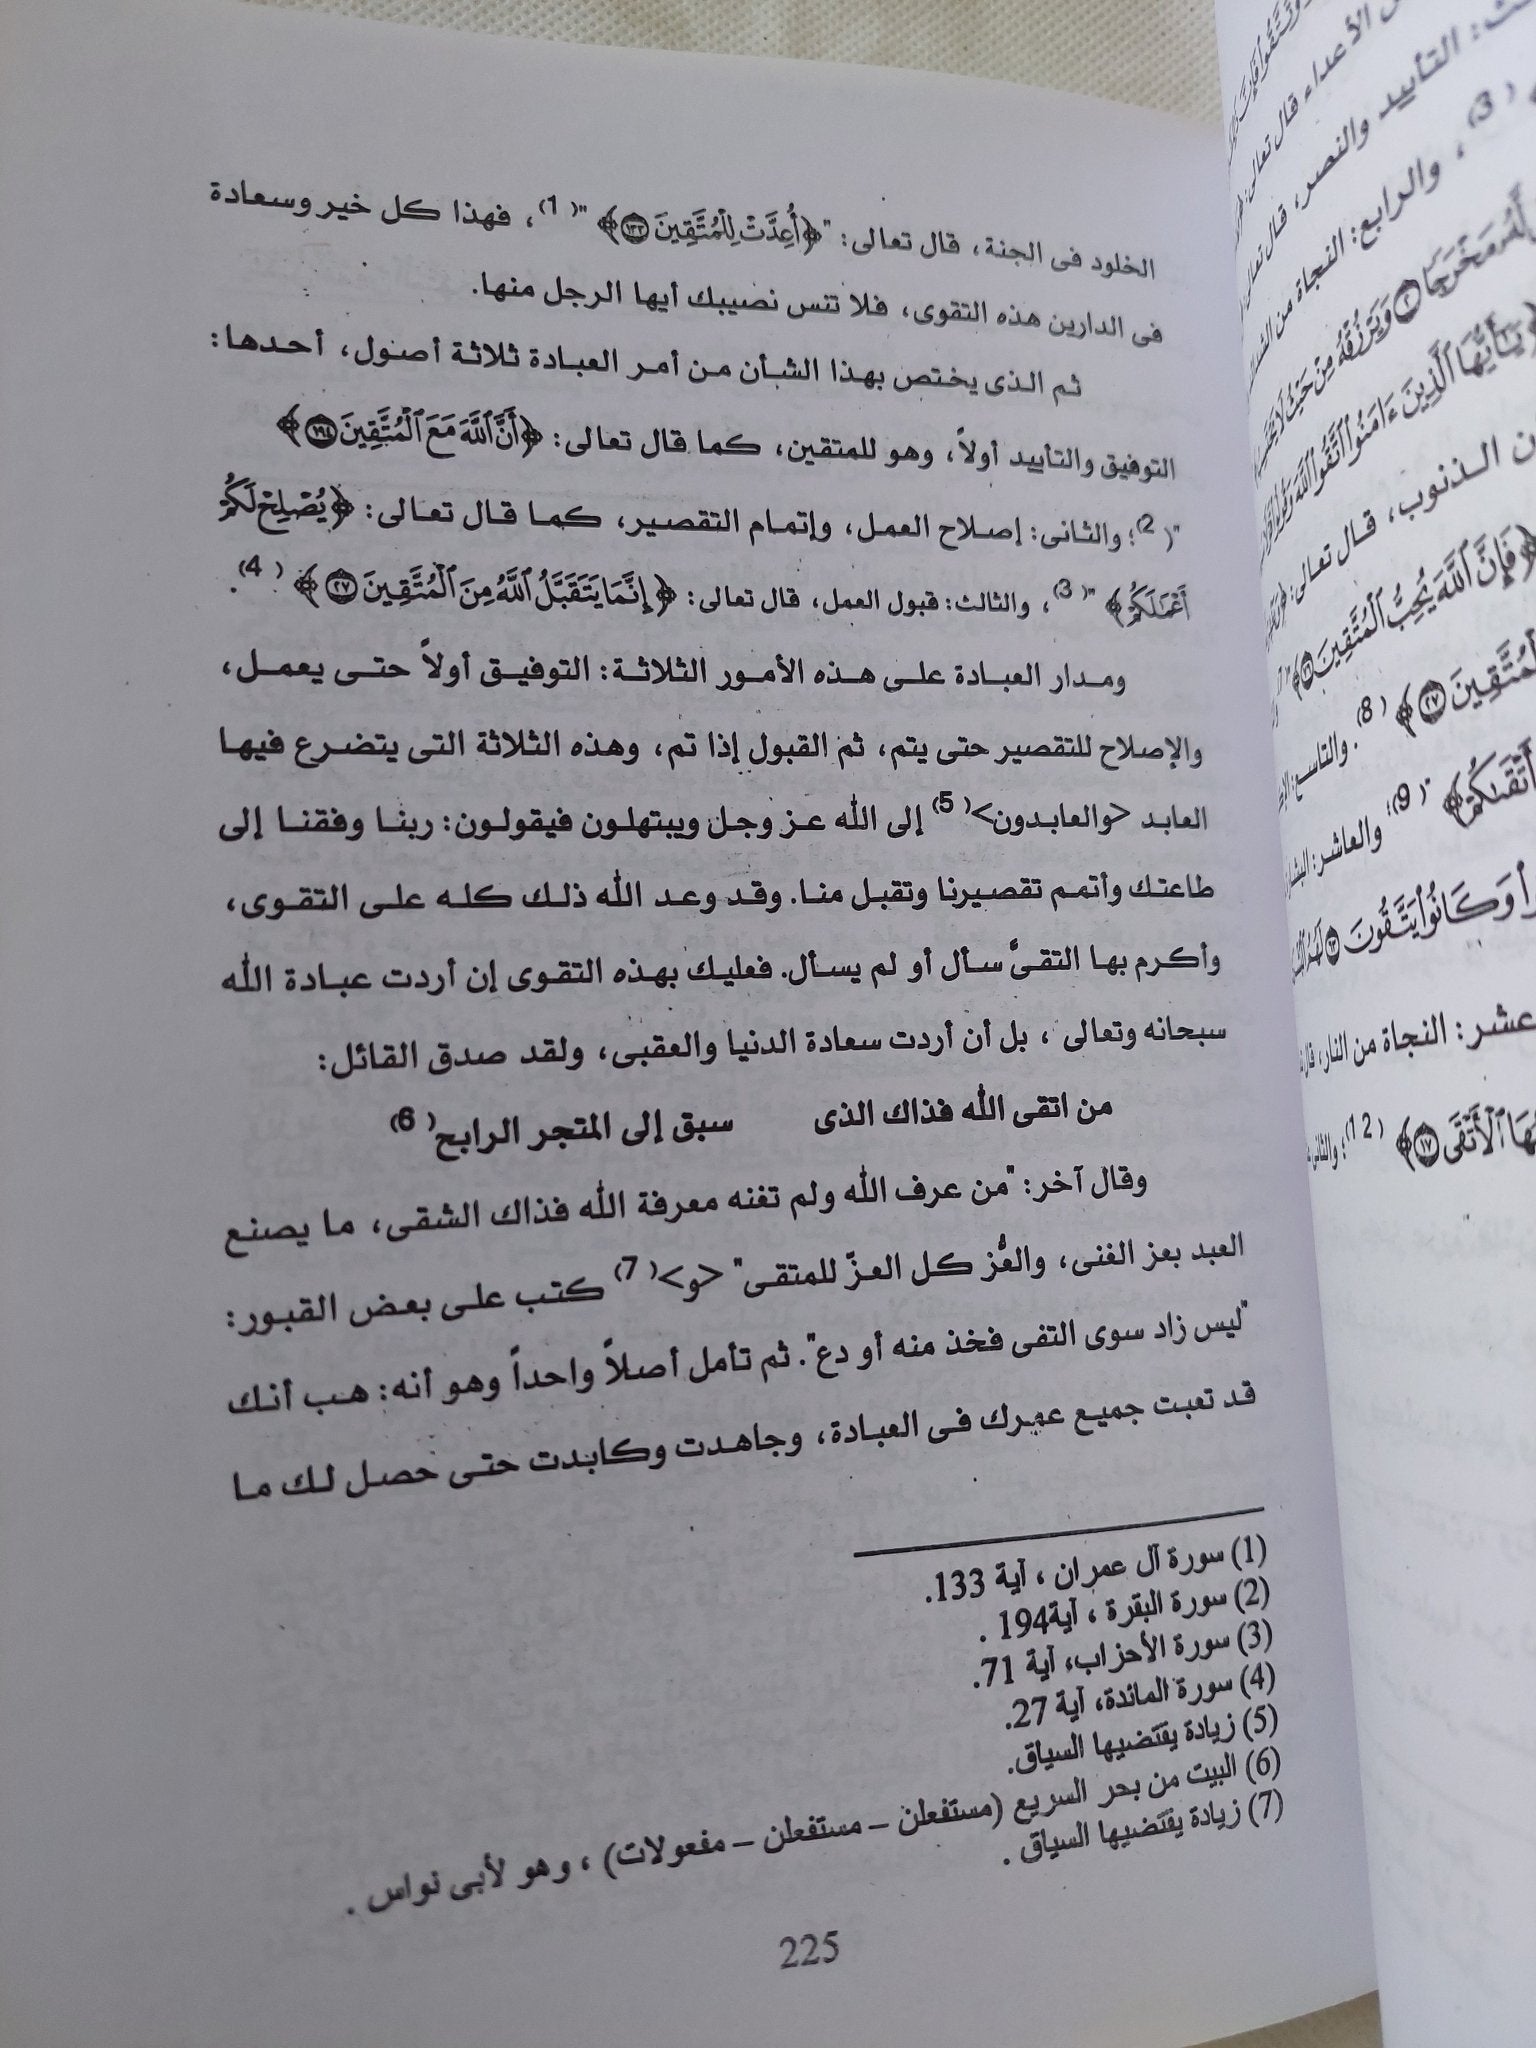 الخلود فى الجنة، قال تعالى: "﴿أُعِدَّتْ لِلْمُتَّقِينَ ١٣٣﴾ "(1)، فهذا كل خير وسعادة
فى الدارين هذه التقوى، فلا تنس نصيبك أيها الرجل منها.
ثم الذى يختص بهذا الشأن من أمر العبادة ثلاثة أصول، أحدها:
التوفيق والتأييد أولاً، وهو للمتقين، كما قال تعالى: ﴿أَنَّ ٱللَّهَ مَعَ ٱلْمُتَّقِينَ ١٩٤﴾
"(2)؛ والثانى: إصلاح العمل، وإتمام التقصير، كما قال تعالى: ﴿يُصْلِحْ لَكُمْ
أَعْمَٰلَكُمْ﴾ "(3)، والثالث: قبول العمل، قال تعالى: ﴿إِنَّمَا يَتَقَبَّلُ ٱللَّهُ مِنَ ٱلْمُتَّقِينَ ٢٧﴾ (4).
ومدار العبادة على هذه الأمور الثلاثة: التوفيق أولاً حتى يعمل،
والإصلاح للتقصير حتى يتم، ثم القبول إذا تم، وهذه الثلاثة التى يتضرع فيها
العابد <والعابدون>(5) إلى الله عز وجل ويبتهلون فيقولون: ربنا وفقنا إلى
طاعتك وأتمم تقصيرنا وتقبل منا. وقد وعد الله ذلك كله على التقوى،
وأكرم بها التقىَّ سأل أو لم يسأل. فعليك بهذه التقوى إن أردت عبادة الله
سبحانه وتعالى ، بل أن أردت سعادة الدنيا والعقبى، ولقد صدق القائل:
من اتقى الله فذاك الذى سبق إلى المتجر الرابح(6)
وقال آخر: "من عرف الله ولم تغنه معرفة الله فذاك الشقى، ما يصنع
العبد بعز الغنى، والعُّز كل العزّ للمتقى" <و>(7) كتب على بعض القبور:
"ليس زاد سوى التفى فخذ منه أو دع". ثم تأمل أصلاً واحداً وهو أنه: هب أنك
قد تعبت جميع عمرك فى العبادة، وجاهدت وكابدت حتى حصل لك ما
(1) سورة آل عمران ، آية 133.
(2) سورة البقرة ، آية194 .
(3) سورة الأحزاب، آية 71.
(4) سورة المائدة، آية 27.
(5) زيادة يقتضيها السياق.
(6) البيت من بحر السريع (مستفعلن – مستفعلن – مفعولات) ، وهو لأبى نواس .
(7) زيادة يقتضيها السياق .
225
الأعداء قال تعالى:
التأييد والنصر، قال تعالى:
(3) ، والرابع: النجاة من
مَخْرَجًا ٢ وَيَرْزُقْهُ مِنْ حَيْثُ لَا
يَٰٓأَيُّهَا ٱلَّذِينَ ءَامَنُوا۟ ٱتَّقُوا۟ ٱللَّهَ وَقُولُوا۟
الذنوب، قال تعالى:
﴿فَإِنَّ ٱللَّهَ يُحِبُّ ٱلْمُتَّقِينَ ﴾
٢٧﴾ (8). والتاسع:
أَتْقَىٰكُمْ﴾ "(9)؛ والعاشر:
وَكَانُوا۟ يَتَّقُونَ ٦٣ لَهُمُ
عشر: النجاة من النار،
ٱلْأَتْقَى ١٧﴾ (12)؛